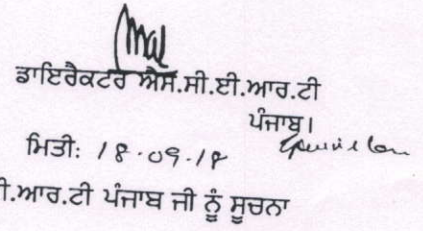 ਡਾਇਰੈਕਟਰ ਐਸ.ਸੀ.ਈ.ਆਰ.ਟੀ
ਪੰਜਾਬ।
ਮਿਤੀ: 18.09.18
ੀ.ਆਰ.ਟੀ ਪੰਜਾਬ ਜੀ ਨੂੰ ਸੂਚਨਾ